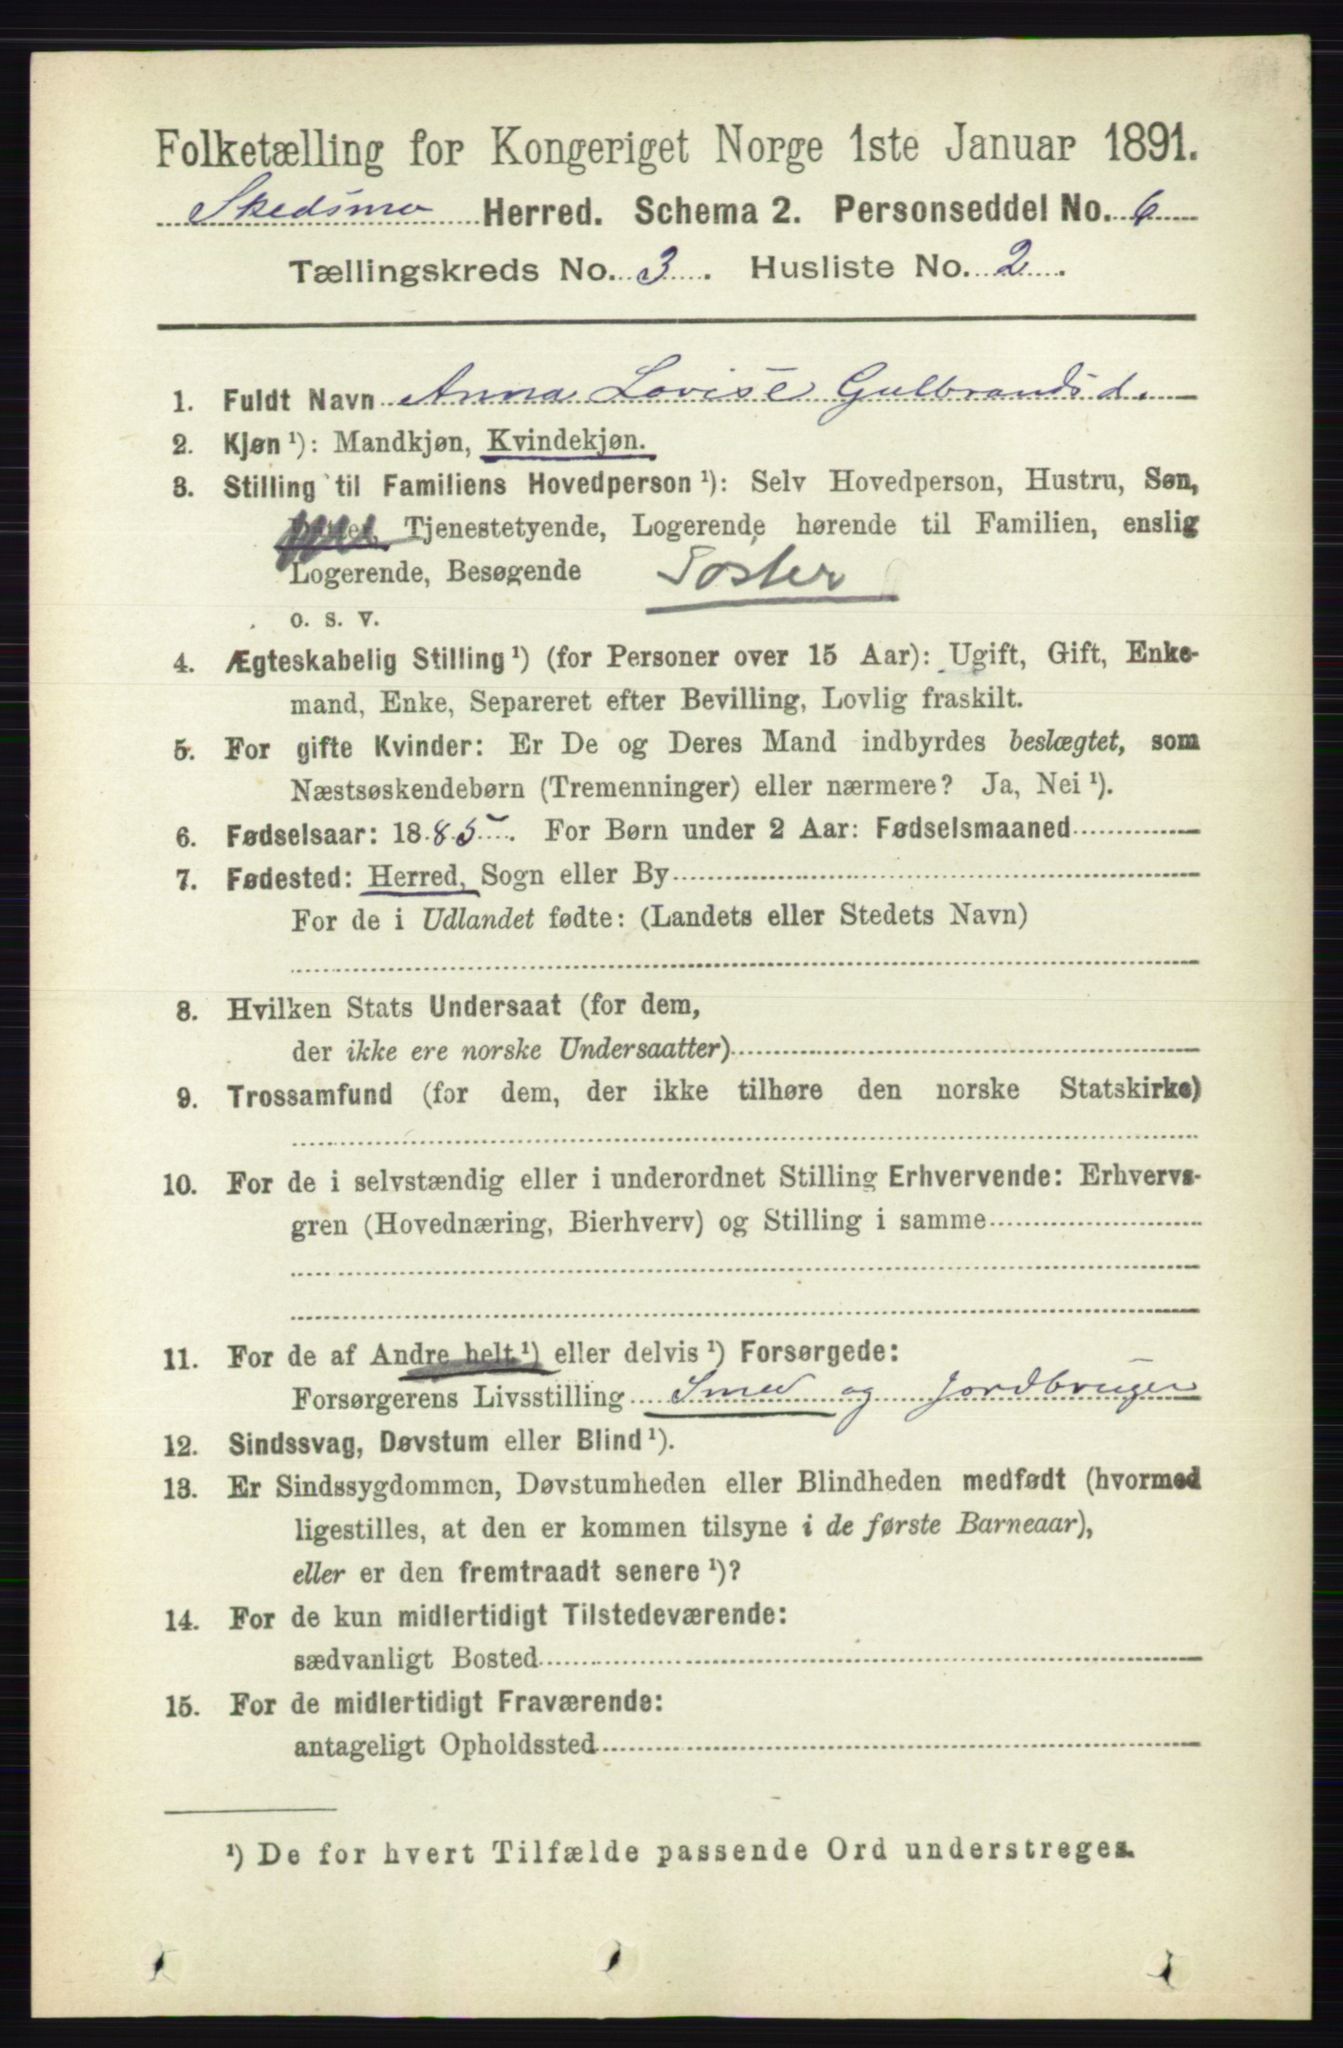 Folketælling for Kongeriget Norge 1ste Januar 1891.
Skedsmo Herred. Schema 2. Personseddel No. 6
Tællingskreds No. 3. Husliste No. 2.
1. Fuldt Navn Anna Lovise Gulbrandsd.
2. Kjøn ¹): Mandkjøn, Kvindekjøn.
3. Stilling til Familiens Hovedperson ¹): Selv Hovedperson, Hustru, Søn,
Tjenestetyende, Logerende hørende til Familien, enslig
Logerende, Besøgende Søster
o. s. v.
4. Ægteskabelig Stilling ¹) (for Personer over 15 Aar): Ugift, Gift, Enke-
mand, Enke, Separeret efter Bevilling, Lovlig fraskilt.
5. For gifte Kvinder: Er De og Deres Mand indbyrdes beslægtet, som
Næstsøskendebørn (Tremenninger) eller nærmere? Ja, Nei ¹).
6. Fødselsaar: 1885. For Børn under 2 Aar: Fødselsmaaned
7. Fødested: Herred, Sogn eller By
For de i Udlandet fødte: (Landets eller Stedets Navn)
8. Hvilken Stats Undersaat (for dem,
der ikke ere norske Undersaatter)
9. Trossamfund (for dem, der ikke tilhøre den norske Statskirke)
10. For de i selvstændig eller i underordnet Stilling Erhvervende: Erhvervs-
gren (Hovednæring, Bierhverv) og Stilling i samme
11. For de af Andre helt ¹) eller delvis ¹) Forsørgede:
Forsørgerens Livsstilling Smed og Jordbruger
12. Sindssvag, Døvstum eller Blind ¹).
13. Er Sindssygdommen, Døvstumheden eller Blindheden medfødt (hvormed
ligestilles, at den er kommen tilsyne i de første Barneaar),
eller er den fremtraadt senere ¹)?
14. For de kun midlertidigt Tilstedeværende:
sædvanligt Bosted
15. For de midlertidigt Fraværende:
antageligt Opholdssted
¹) De for hvert Tilfælde passende Ord understreges.